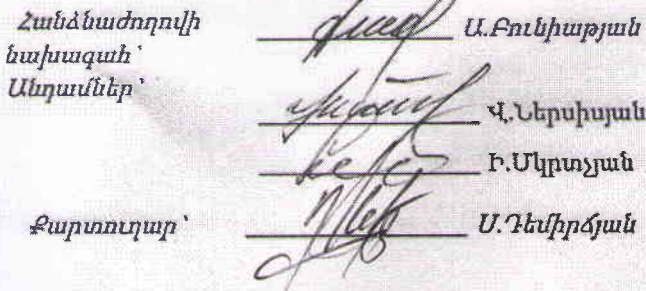 Հանձնաժողովի
նախագահ՝ Ա.Բունիաթյան
Անդամներ՝
Վ.Ներսիսյան
Ի.Մկրտչյան
Քարտուղար՝ Ս.Դեմիրճյան